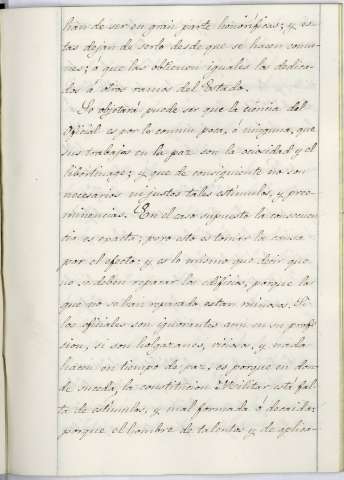 han de ser en gran parte honorificas; y es-
tas dejan de serlo desde que se hacen comu-
nes; ó que las obtienen iguales los dedica-
dos á otros ramos del Estado.
Se objetará puede ser que la ciencia del
Oficial es por lo comun poca, ó ninguna, que
sus trabajos en la paz son la ociosidad y el
libertinage; y que de consiguiente no son
necesarios ni justos tales estimulos, y pree-
minencias. En el caso supuesto la consecuen
cia es exacta; pero esto es tomar la causa
por el efecto: y es lo mismo que decir que
no se deben reparar los edificios, porque los
que no se han reparado estan ruinosos. Si
los oficiales son ignorantes aun en su profe-
sion, si son holgazanes, viciosos, y nada
hacen en tiempo de paz, es porque en don-
de suceda, la constitucion Militar está fal-
ta de estimulos, y mal formada ó decaida;
porque el hombre de talentos y de aplica-